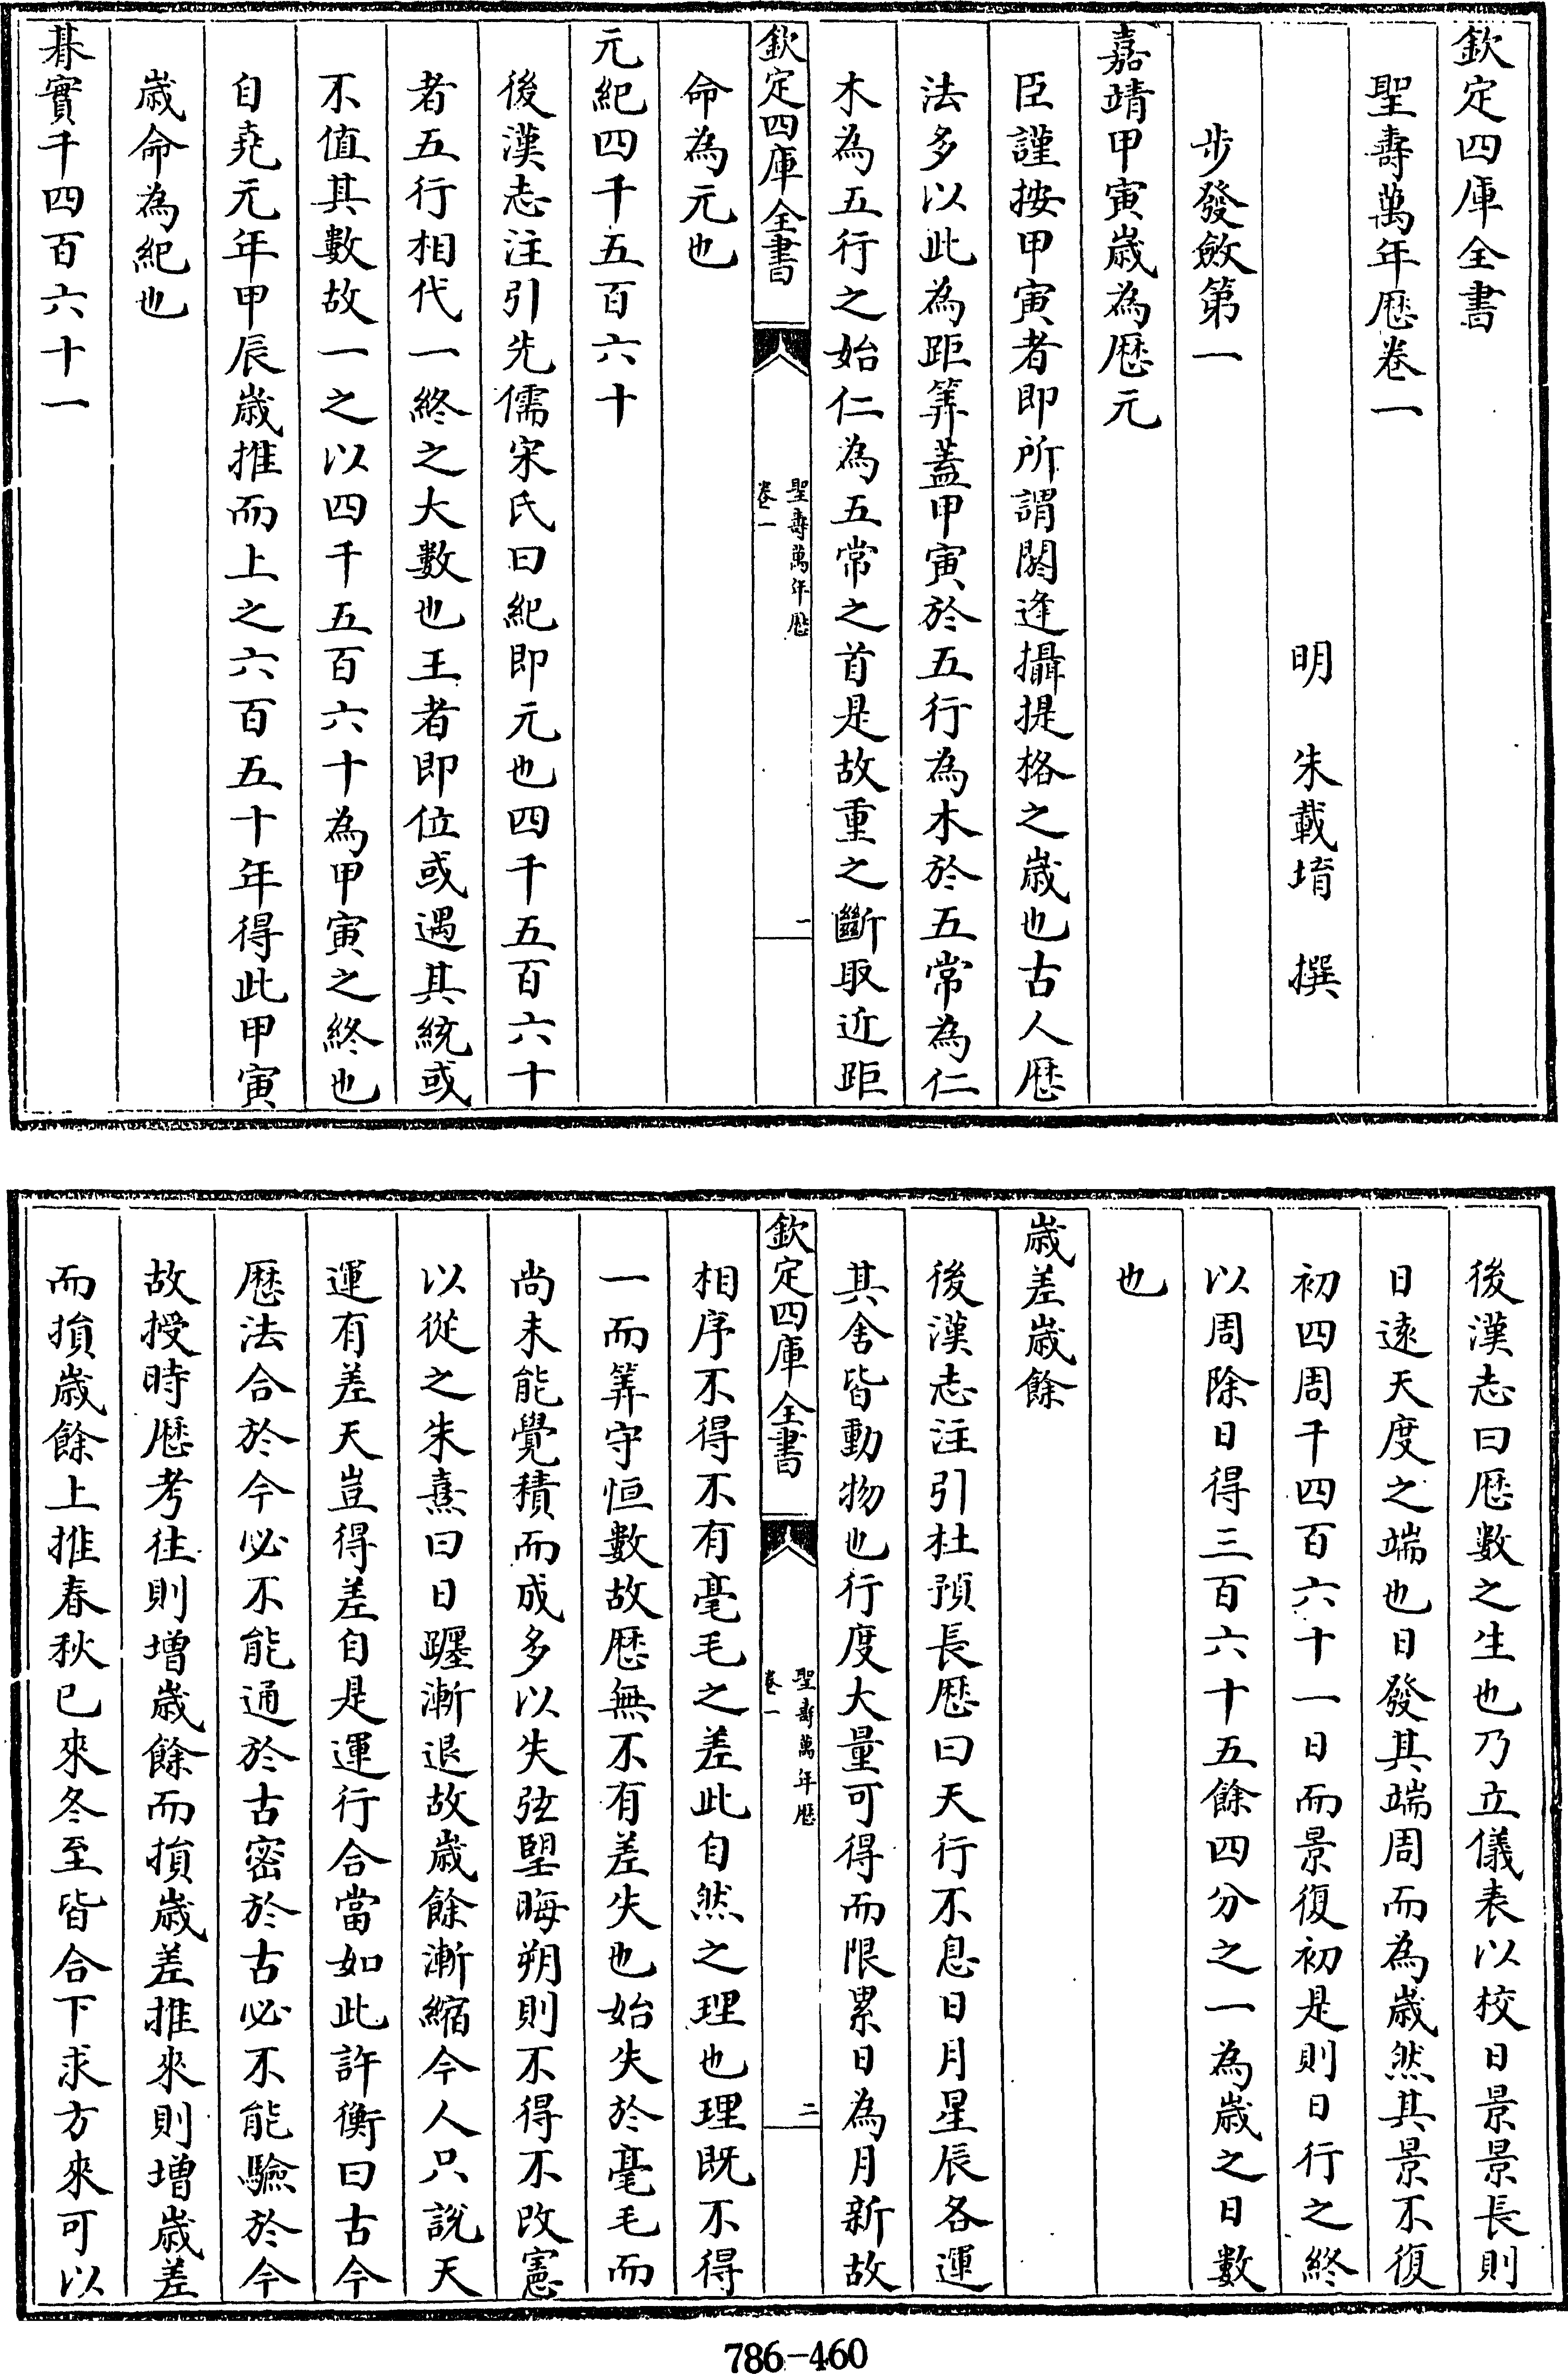 欽定四庫全書
聖壽萬年厯卷一
明　朱載堉　撰
步發斂第一
嘉靖甲寅歲為厯元
臣謹按甲寅者即所謂閼逢攝提格之歲也古人厯
法多以此為距筭蓋甲寅於五行為木於五常為仁
木為五行之始仁為五常之首是故重之斷取近距
欽定四庫全書
聖壽萬年厯
卷一
一
命為元也
元紀四千五百六十
後漢志注引先儒宋氏曰紀即元也四千五百六十
者五行相代一終之大數也王者即位或遇其統或
不值其數故一之以四千五百六十為甲寅之終也
自堯元年甲辰歲推而上之六百五十年得此甲寅
歲命為紀也
朞實千四百六十一
後漢志曰厯數之生也乃立儀表以校日景景長則
日遠天度之端也日發其端周而為歲然其景不復
初四周千四百六十一日而景復初是則日行之終
以周除日得三百六十五餘四分之一為歲之日數
也
歲差歲餘
後漢志注引杜預長厯曰天行不息日月星辰各運
其舍皆動物也行度大量可得而限累日為月新故
欽定四庫全書
聖壽萬年厯
卷一
二
相序不得不有毫毛之差此自然之理也理既不得
一而筭守恒數故厯無不有差失也始失於毫毛而
尚未能覺積而成多以失弦朢晦朔則不得不改憲
以從之朱熹曰日躔漸退故歲餘漸縮今人只說天
運有差天豈得差自是運行合當如此許衡曰古今
厯法合於今必不能通於古密於古必不能驗於今
故授時厯考往則增歲餘而損歲差推來則增歲差
而損歲餘上推春秋已來冬至皆合下求方來可以
786-460